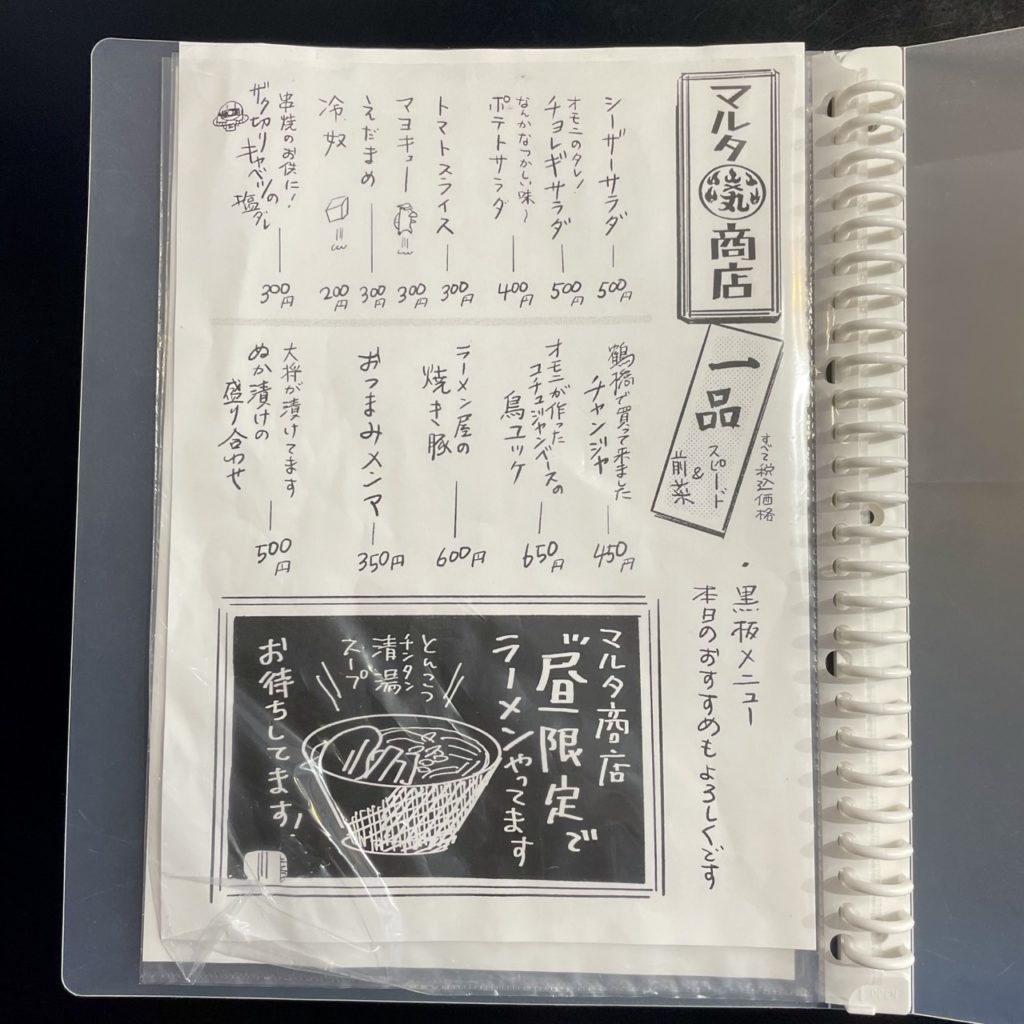 マルタ
商店
一品
スピード
&
前菜
すべて税込価格
シーザーサラダ
500円
オモニのタレ!
チョレギサラダ
500円
なんかなつかしい味〜
ポテトサラダ
400円
トマトスライス
300円
マヨキュー
300円
えだまめ
300円
冷奴
200円
串焼のお供に!
ザク切りキャベツの
塩ダレ
300円
鶴橋で買って来ました
チャンジャ
450円
オモニが作った
コチュジャンベースの
鳥ユッケ
650円
ラーメン屋の
焼き豚
600円
おつまみメンマ
350円
大将が漬けてます
ぬか漬けの
盛り合わせ
500円
・黒板メニュー
本日のおすすめもよろしくです
マルタ商店
昼限定で
ラーメンやってます
とんこつ
チンタン
清湯
スープ
お待ちしてます!